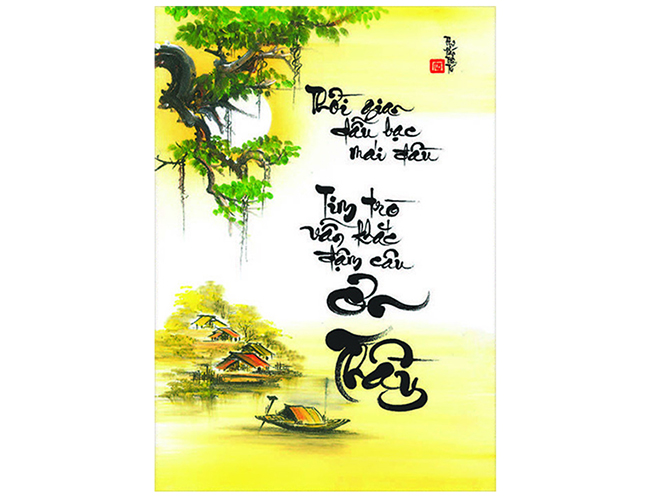 Thời gian
dẫu bạc
mái đầu
Tim trò
vẫn khắc
đậm câu
ơn
Thầy